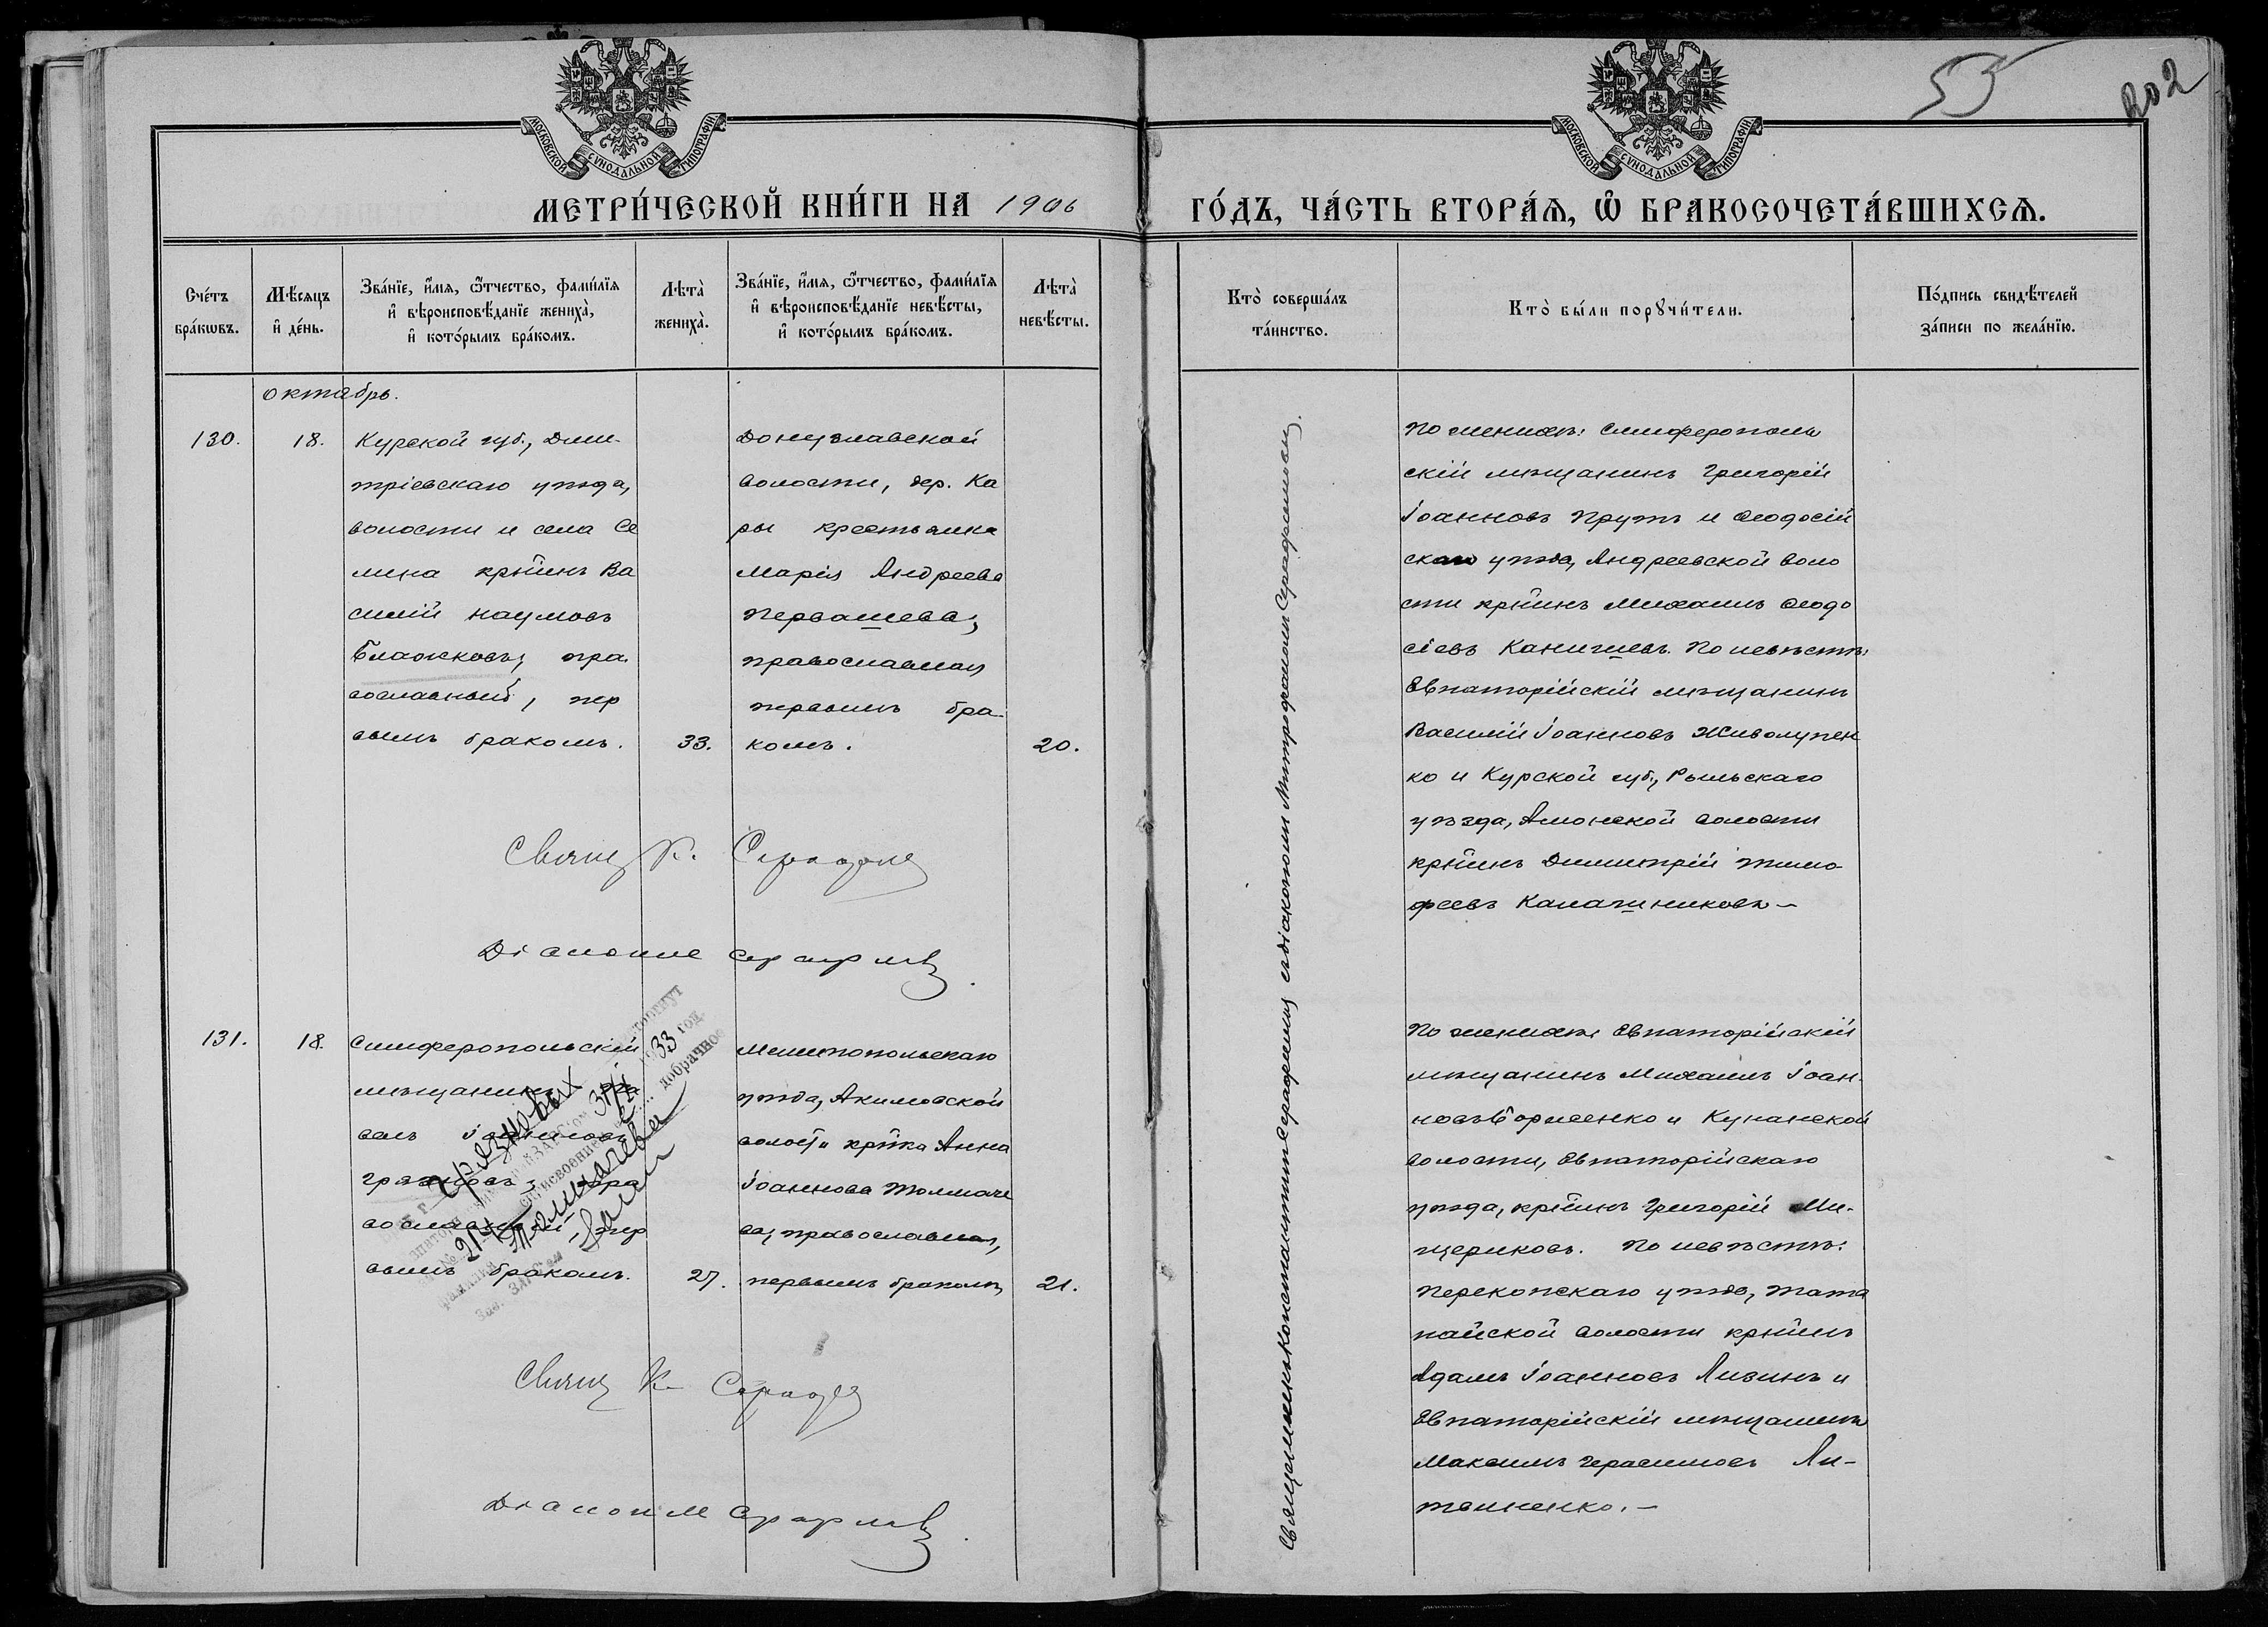 55
202
МОСКОВСКОЙ СѴНОДАЛЬНОЙ ТИПОГРАФІИ
МОСКОВСКОЙ СѴНОДАЛЬНОЙ ТИПОГРАФІИ
МЕТРИ́ЧЕСКОЙ КНИ́ГИ НА 1906
ГО́ДЪ, ЧА́СТЬ ВТОРА́Ѧ, Ѡ҆ БРАКОСОЧЕТА́ВШИХСѦ.
Сче́тъ
бра́кѡвъ.
Мѣ́сѧцъ
и҆ де́нь.
Зва́нїе, и҆́мѧ, ѻ҆́тчество, фами́лїѧ
и҆ вѣроисповѣ́данїе жениха̀,
и҆ кото́рымъ бра́комъ.
Лѣта̀
жениха̀.
Зва́нїе, и҆́мѧ, ѻ҆́тчество, фами́лїѧ
и҆ вѣроисповѣ́данїе невѣ́сты,
и҆ кото́рымъ бра́комъ.
Лѣта̀
невѣ́сты.
Кто̀ соверша́лъ
та́инство.
Кто̀ бы́ли порꙋчи́тели.
По́дпись свидѣ́телей
за́писи по жела́нїю.
Октябрь.
130.
18.
Курской губ., Дми-
тріевскаго уѣзда,
волости и села Се
мина кр҃нинъ Ва
силій Наумовъ
Блажковъ, пра
вославный, пер
вымъ бракомъ.
33.
Донузлавской
волости, дер. Ка
ры крестьянка
Марія Андреева
Первашева,
православная
первымъ бра-
комъ.
20.
Священникъ Константинъ Серафимъ съ діакономъ Митрофаномъ Серафимовымъ.
По женихѣ: Симферополь
скій мѣщанинъ Григорій
Іоанновъ Прутъ и Ѳеодосій
скаго уѣзда, Андреевской воло
сти кр҃нинъ Михаилъ Ѳеодо
сіевъ Каничевъ. По невѣстѣ:
Евпаторійскій мѣщанинъ
Василій Іоанновъ Живолупен
ко и Курской губ., Рыльскаго
уѣзда, Амонской волости
кр҃нинъ Димитрій Тимо
феевъ Калашниковъ —
Свящ К.
Діаконъ М
131.
18.
Симферопольскій
мѣщанинъ
Іоанновъ
Грязновъ, пра
вославный, пер
вымъ бракомъ.
27.
Мелитопольскаго
уѣзда, Акимовской
волости кр҃нка Анна
Іоаннова Толмаче
ва, православная,
первымъ бракомъ,
21.
Грязновых
33 год.
добрачное
Толмачева
Зав. ЗАГСом
По женихѣ: Евпаторійскій
мѣщанинъ Михаилъ Іоан-
новъ Борисенко и Кунанской
волости, Евпаторійскаго
уѣзда, кр҃нинъ Григорій Ми-
щериковъ. По невѣстѣ:
Перекопскаго уѣзда, Тата
найской волости кр҃нинъ
Адамъ Іоанновъ Лизинъ и
Евпаторійскій мѣщанинъ
Максимъ Герасимовъ Ли-
твиненко. —
Свящ К.
Діаконъ М